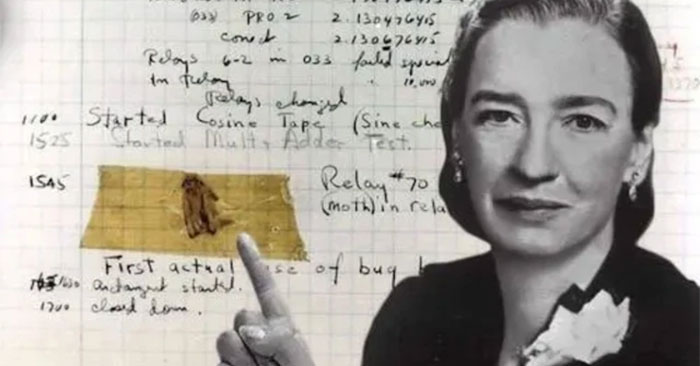 (033) PRO 2 2.130476415
conect 2.130676415
Relays 6-2 in 033 failed special
In Relay 10,000
Relays changed
1100 Started Cosine Tape (Sine che
1525 Started Mult+ Adder Test.
1545 Relay #70
(moth) in rela
First actual se of bug b
1630 antangent started.
1700 closed down.